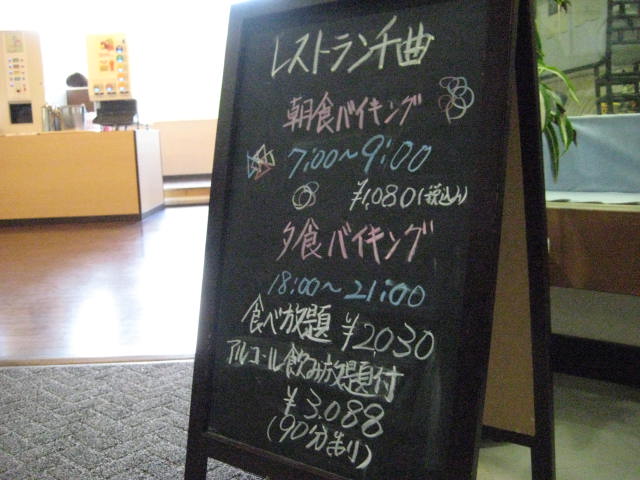 レストラン千曲
朝食バイキング
7:00～9:00
¥1,080(税込み)
夕食バイキング
18:00～21:00
食べ放題 ¥2,030
アルコール飲み放題付
¥3,088
(90分制)